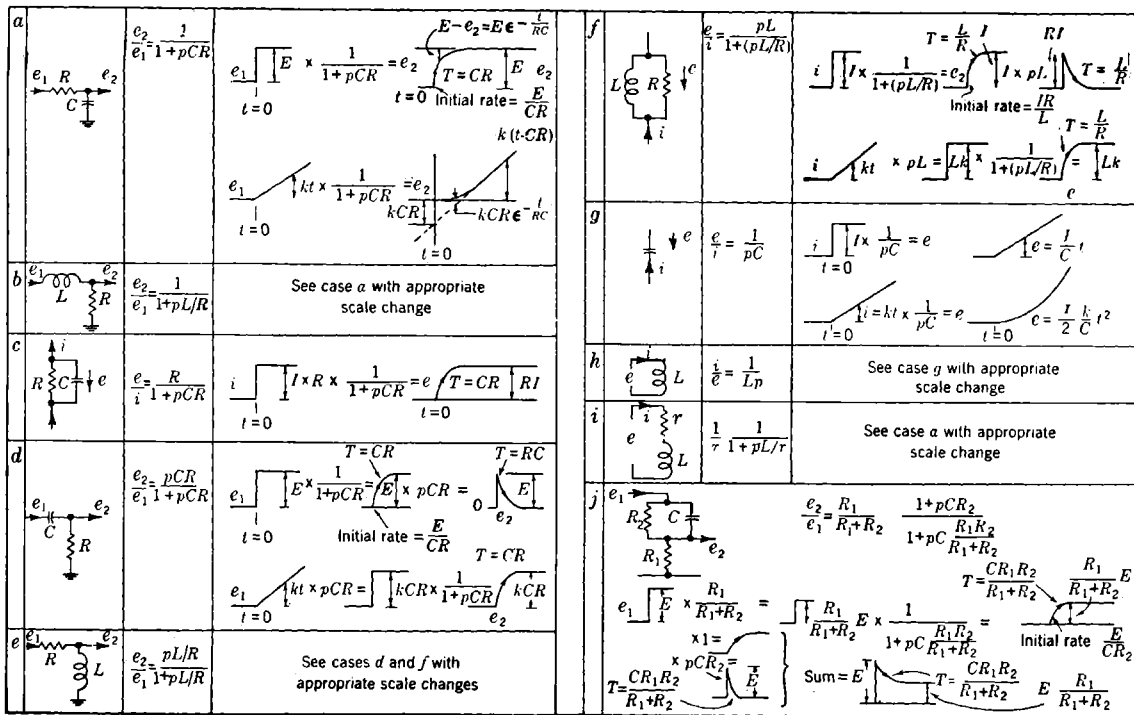 a
e₁ R e₂
C
e₂/e₁ = 1/(1+pCR)
E−e₂=Eϵ^(−t/RC)
e₁ E × 1/(1+pCR) = e₂ T=CR E e₂
t=0 Initial rate = E/CR
t=0
k(t-CR)
e₁ kt × 1/(1+pCR) = e₂
kCR kCRϵ^(−t/RC)
t=0 t=0
b
e₁ e₂
L R
e₂/e₁ = 1/(1+pL/R)
See case a with appropriate
scale change
c
i
R C e
e/i = R/(1+pCR)
i I × R × 1/(1+pCR) = e T=CR RI
t=0 t=0
d
e₁ e₂
C
R
e₂/e₁ = pCR/(1+pCR)
T=CR T=RC
e₁ E × 1/(1+pCR) = E × pCR = 0 E
e₂
t=0 Initial rate = E/CR
T=CR
e₁ kt × pCR = kCR × 1/(1+pCR) kCR
t=0 e₂
e
e₁ e₂
R L
e₂/e₁ = (pL/R)/(1+pL/R)
See cases d and f with
appropriate scale changes
f
L R e
i
e/i = pL/(1+(pL/R))
T=L/R I RI
i I × 1/(1+(pL/R)) = e₂ I × pL T=L/R
Initial rate = IR/L
T=L/R
i kt × pL = Lk × 1/(1+(pL/R)) = Lk
e
g
e
i
e/i = 1/pC
i I × 1/pC = e e = I/C t
t=0
i=kt × 1/pC = e e = I/2 k/C t²
t=0 t=0
h
i
e L
i/e = 1/Lp
See case g with appropriate
scale change
i
i r
e
L
1/r 1/(1+pL/r)
See case a with appropriate
scale change
j
e₁
R₂ C
e₂
R₁
e₂/e₁ = R₁/(R₁+R₂) (1+pCR₂)/(1+pC R₁R₂/(R₁+R₂))
T = CR₁R₂/(R₁+R₂) R₁/(R₁+R₂) E
e₁ E × R₁/(R₁+R₂) = R₁/(R₁+R₂) E × 1/(1+pC R₁R₂/(R₁+R₂)) =
Initial rate E/CR₂
×1=
× pCR₂ =
T = CR₁R₂/(R₁+R₂) E
Sum = E T = CR₁R₂/(R₁+R₂) E R₁/(R₁+R₂)